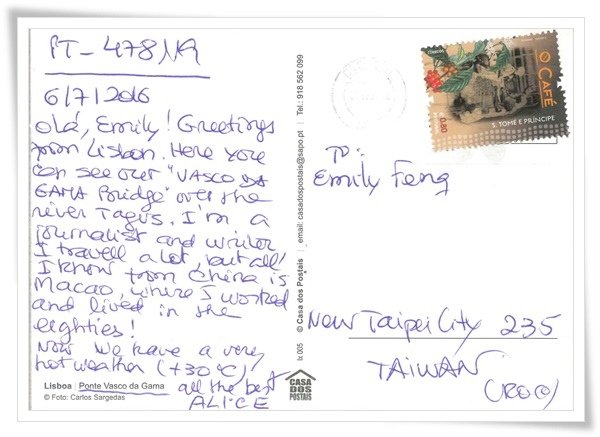 PT-478NA
6/7/2016
Olá, Emily! Greetings
from Lisbon. Here you
can see our "VASCO DA
GAMA Bridge" over the
river Tagus. I'm a
journalist and writer
I travell a lot, but all
I know from China is
Macao, where I worked
and lived in the
eighties!
Now we have a very
hot weather (+30°C)
all the best
ALICE
Lisboa | Ponte Vasco da Gama
© Foto: Carlos Sargedas
lx 005 © Casa dos Postais | email: casadospostais@sapo.pt | Tel.: 918 562 099
CASA
DOS
POSTAIS
CORREIOS
O CAFÉ
0.80
S. TOMÉ E PRÍNCIPE
To:
Emily Feng
New Taipei City 235
TAIWAN
(ROC)